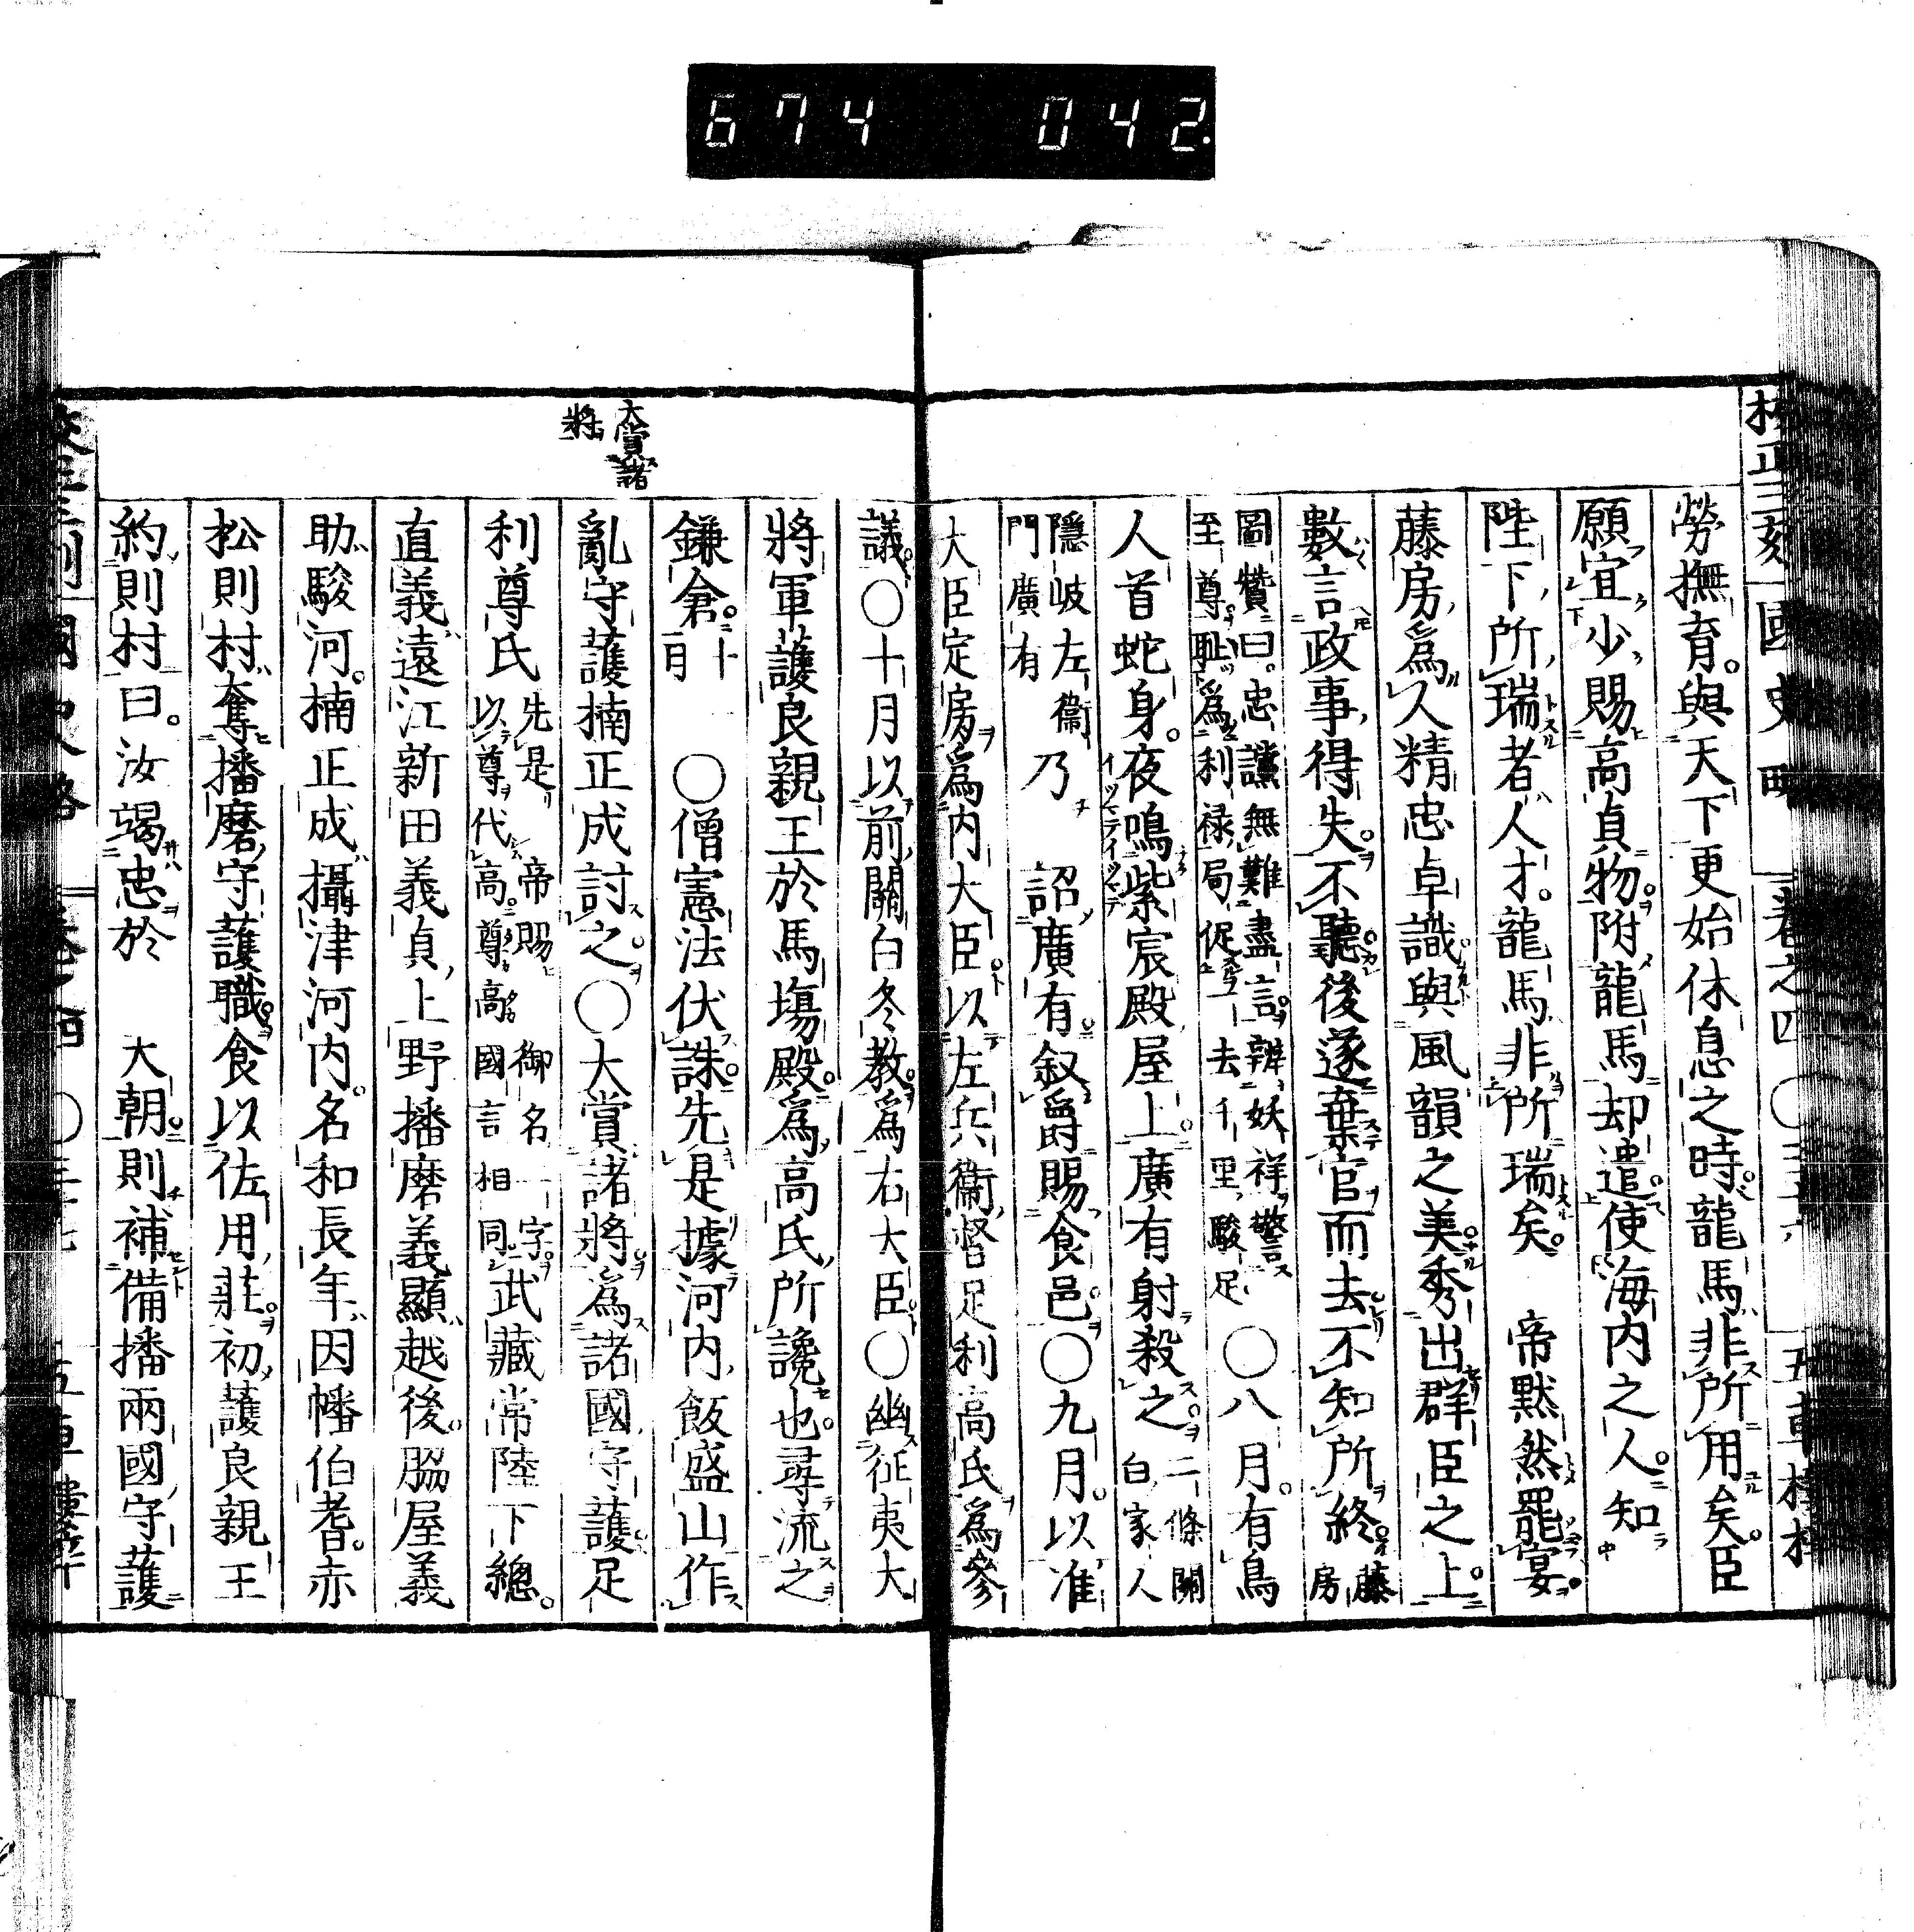 674 042.
校正三刻 國史略 卷之四 ○三十六 五車樓梓
勞撫育。與天下更始休息之時。龍馬非所用矣。臣
願宜少賜高貞物。附龍馬却遣。使海内之人。知
陛下所瑞者人才。龍馬非所瑞矣。 帝默然罷宴。
藤房爲人精忠卓識與風韻之美。秀出群臣之上。
數言政事得失。不聽。後遂棄官而去。不知所終。藤房
圖贊曰。忠讜無難盡言。辨妖祥警至尊。耻爲利祿局促。一去千里駿足 ○八月。有鳥
人首蛇身。夜鳴紫宸殿屋上。廣有射殺之。二條關白家人
隱岐左衞門廣有 乃 詔廣有。叙爵賜食邑。○九月。以准
大臣定房爲内大臣。以左兵衞督足利高氏爲參
議。○十月以前關白冬教。爲右大臣。○幽征夷大
將軍護良親王於馬塲殿。爲高氏所讒也。尋流之
鎌倉。十一月 ○僧憲法伏誅。先是據河内飯盛山作
亂。守護楠正成討之。○大賞諸將。爲諸國守護。足
利尊氏先是 帝賜 御名一字。以尊代高。尊高國言相同 武藏常陸下總。
直義遠江新田義貞上野播磨義顯越後。脇屋義
助駿河。楠正成攝津河内。名和長年因幡伯耆。赤
松則村奪播磨守護職。食以佐用莊。初護良親王
約則村曰。汝竭忠於 大朝。則補備播兩國守護
大賞諸
將